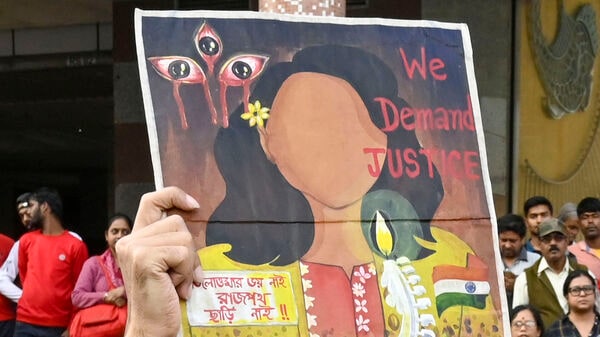 We
Demand
JUSTICE
লোত্তমার ভয় নাই
রাজপথ
ছাড়ি নাই !!